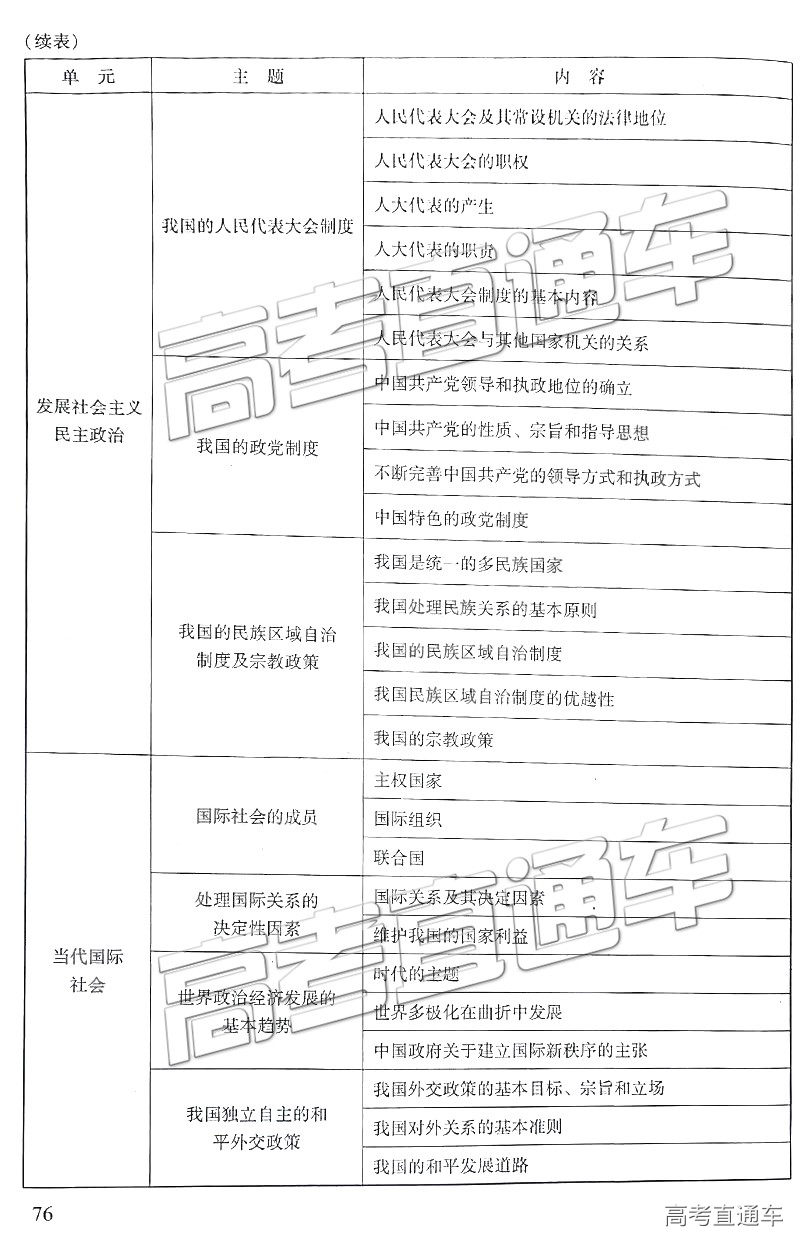 （续表）
单 元 主 题 内 容
人民代表大会及其常设机关的法律地位
人民代表大会的职权
人大代表的产生
我国的人民代表大会制度
人大代表的职责
人民代表大会制度的基本内容
人民代表大会与其他国家机关的关系
中国共产党领导和执政地位的确立
发展社会主义
民主政治
中国共产党的性质、宗旨和指导思想
我国的政党制度
不断完善中国共产党的领导方式和执政方式
中国特色的政党制度
我国是统一的多民族国家
我国处理民族关系的基本原则
我国的民族区域自治
制度及宗教政策
我国的民族区域自治制度
我国民族区域自治制度的优越性
我国的宗教政策
主权国家
国际社会的成员
国际组织
联合国
处理国际关系的
决定性因素
国际关系及其决定因素
维护我国的国家利益
当代国际
社会
时代的主题
世界政治经济发展的
基本趋势
世界多极化在曲折中发展
中国政府关于建立国际新秩序的主张
我国外交政策的基本目标、宗旨和立场
我国独立自主的和
平外交政策
我国对外关系的基本准则
我国的和平发展道路
高考直通车
高考直通车
76
高考直通车